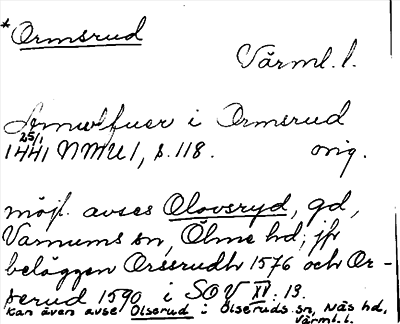 *Ormsrud
Värml. l.
Arnwlfuer i Ormsrud
25/1
1441 NMU 1, s. 118. orig.
möjl. avses Olovsryd, gd,
Varnums sn, Ölme hd; jfr
beläggen Orssrudh 1576 och Or-
serud 1590 i SOV II: 13.
Kan även avse Olserud i Olseruds sn, Näs hd,
Värml. l.